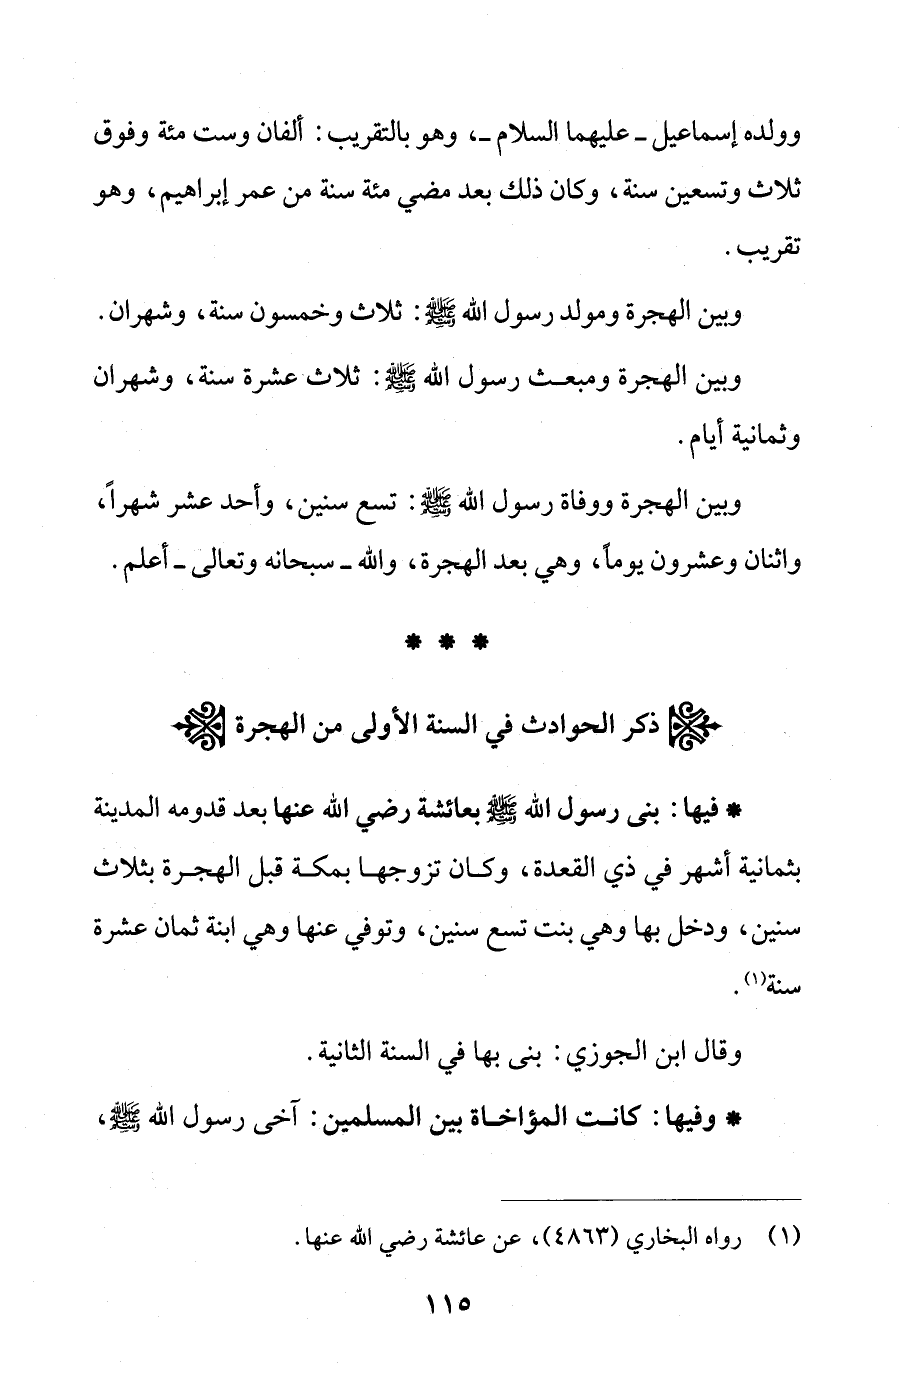 وولده إسماعيل ـ عليهما السلام ـ، وهو بالتقريب: ألفان وست مئة وفوق
ثلاث وتسعين سنة، وكان ذلك بعد مضي مئة سنة من عمر إبراهيم، وهو
تقريب.
وبين الهجرة ومولد رسول الله ﷺ: ثلاث وخمسون سنة، وشهران.
وبين الهجرة ومبعث رسول الله ﷺ: ثلاث عشرة سنة، وشهران
وثمانية أيام.
وبين الهجرة ووفاة رسول الله ﷺ: تسع سنين، وأحد عشر شهراً،
واثنان وعشرون يوماً، وهي بعد الهجرة، والله ـ سبحانه وتعالى ـ أعلم.
* * *
ذكر الحوادث في السنة الأولى من الهجرة
* فيها: بنى رسول الله ﷺ بعائشة رضي الله عنها بعد قدومه المدينة
بثمانية أشهر في ذي القعدة، وكان تزوجها بمكة قبل الهجرة بثلاث
سنين، ودخل بها وهي بنت تسع سنين، وتوفي عنها وهي ابنة ثمان عشرة
سنة(١).
وقال ابن الجوزي: بنى بها في السنة الثانية.
* وفيها: كانت المؤاخاة بين المسلمين: آخى رسول الله ﷺ،
(١) رواه البخاري (٤٨٦٣)، عن عائشة رضي الله عنها.
١١٥